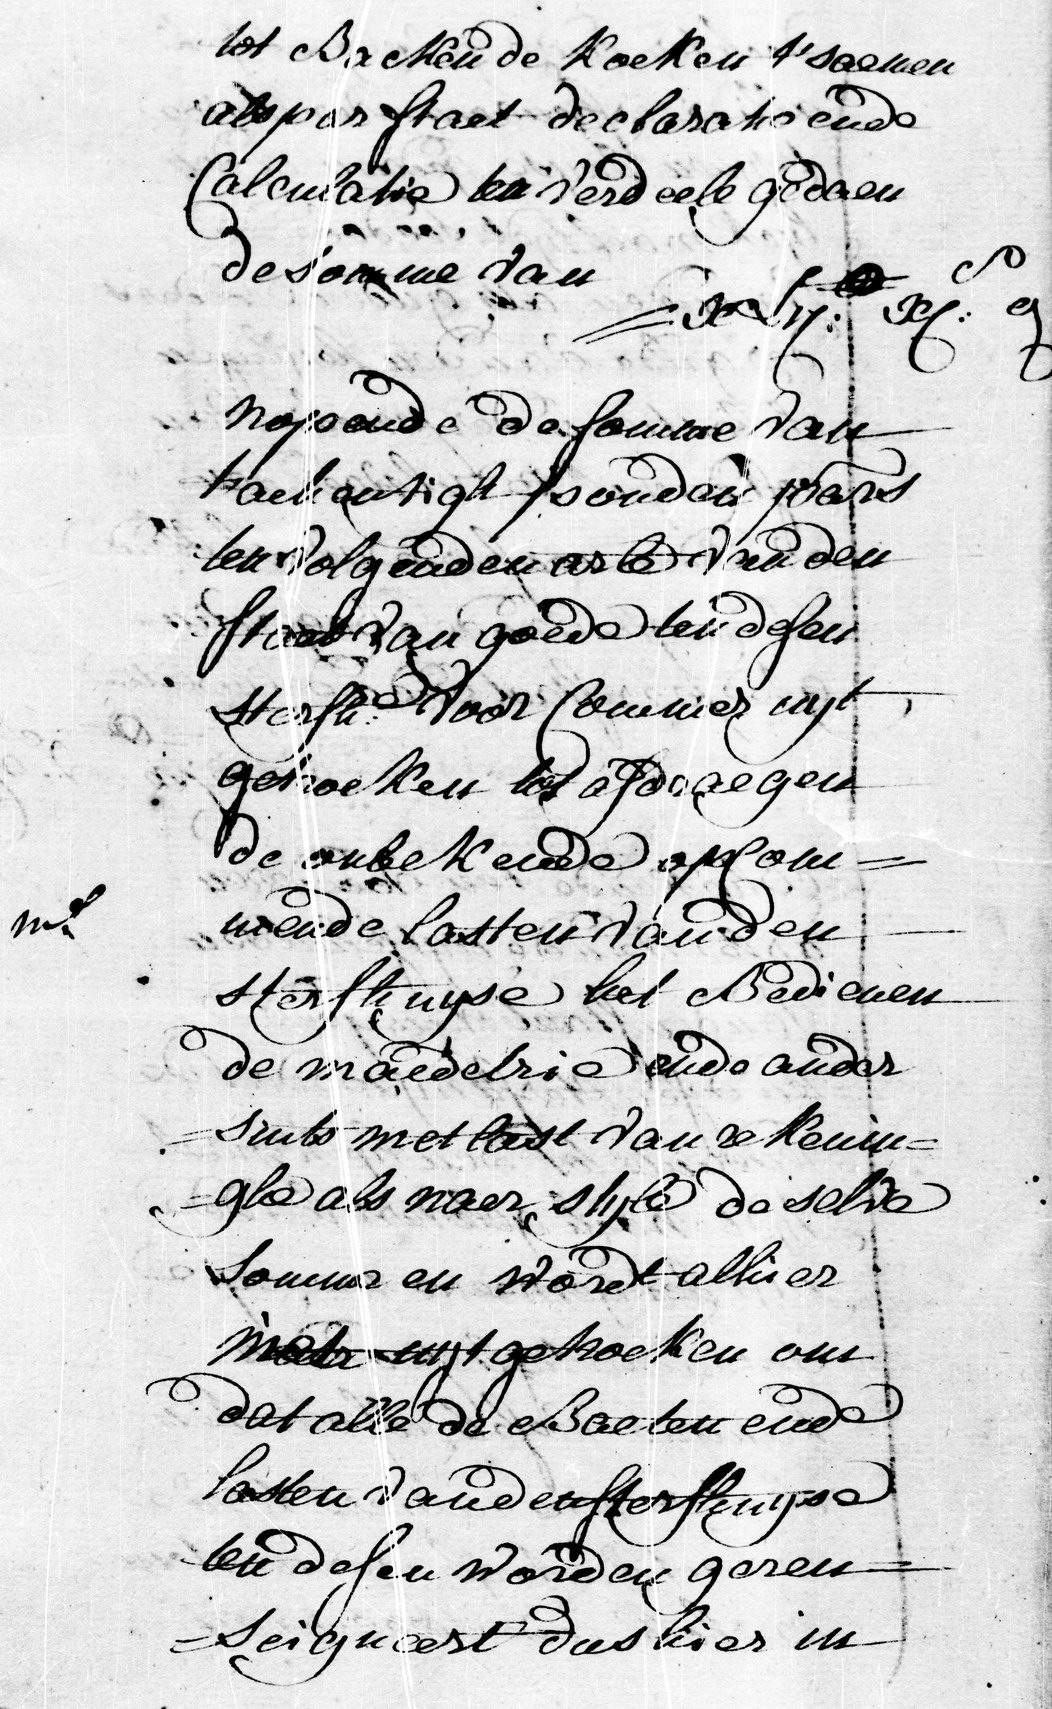 tot Backen de koeken t'saemen
als per staet declaratie ende
Calculatie ten verdeele gedaen
de somme van
nopende de somme van
tachentigh ponden pars
ten volgenden arle van den
staet van goede ten desen
sterfh: voor Commer uyt
getrocken tot afdraegen
de onbekende opcom=
mende lasten van den
sterfhuyse het Bedienen
de maedelrie ende ander
=sints met last van rekenin=
=ghe als naer style de selve
somme en wordt alhier
uytgetrocken om
dat alle de Baeten ende
lasten van den sterfhuyse
ten desen worden geren=
=seigneert dus hier in